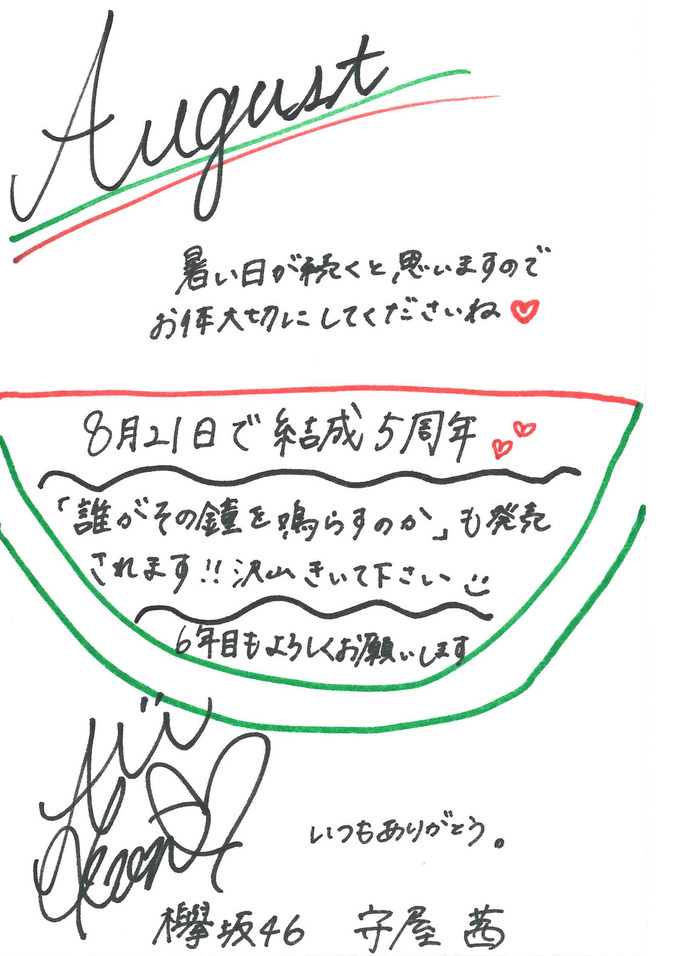 August
暑い日が続くと思いますので
お体大切にしてくださいね
8月21日で結成5周年
「誰がその鐘を鳴らすのか」も発売
されます!!沢山きいて下さい
6年目もよろしくお願いします
いつもありがとう。
欅坂46 守屋 茜